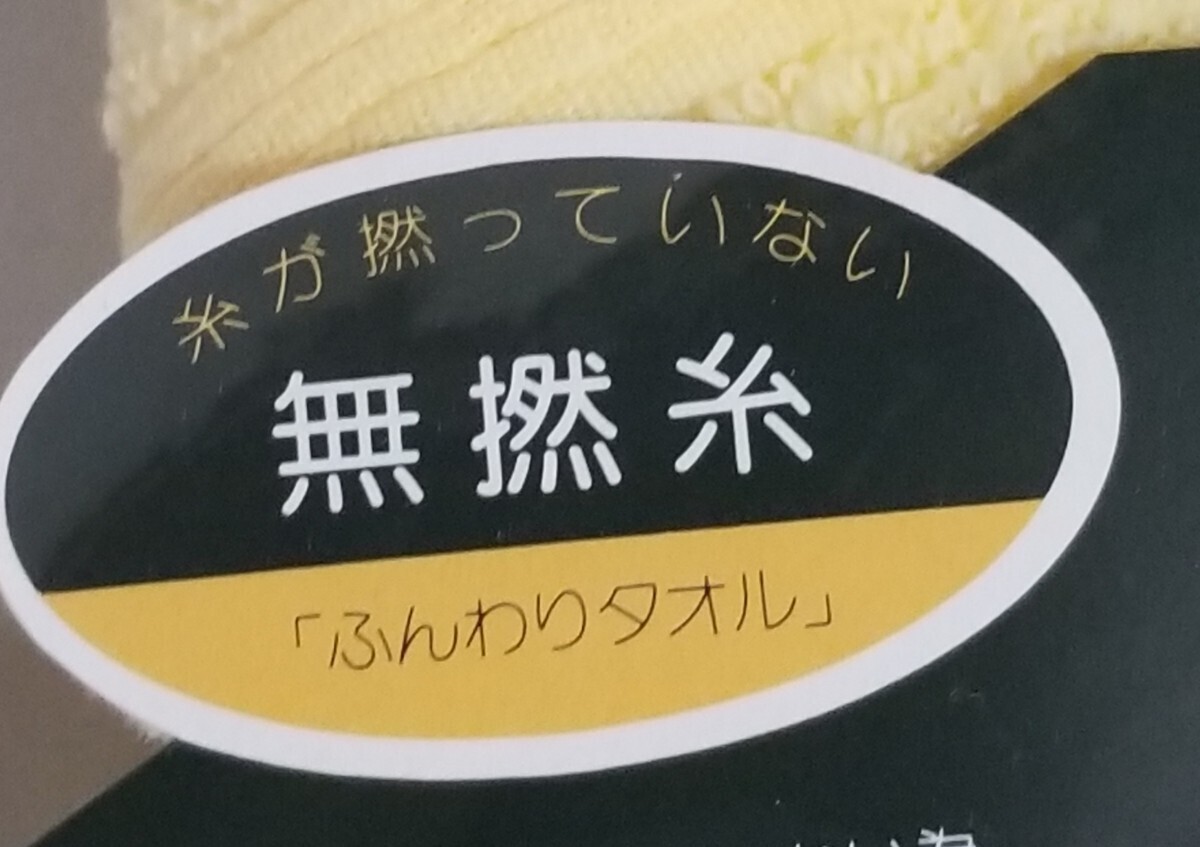 糸が撚っていない
無撚糸
「ふんわりタオル」